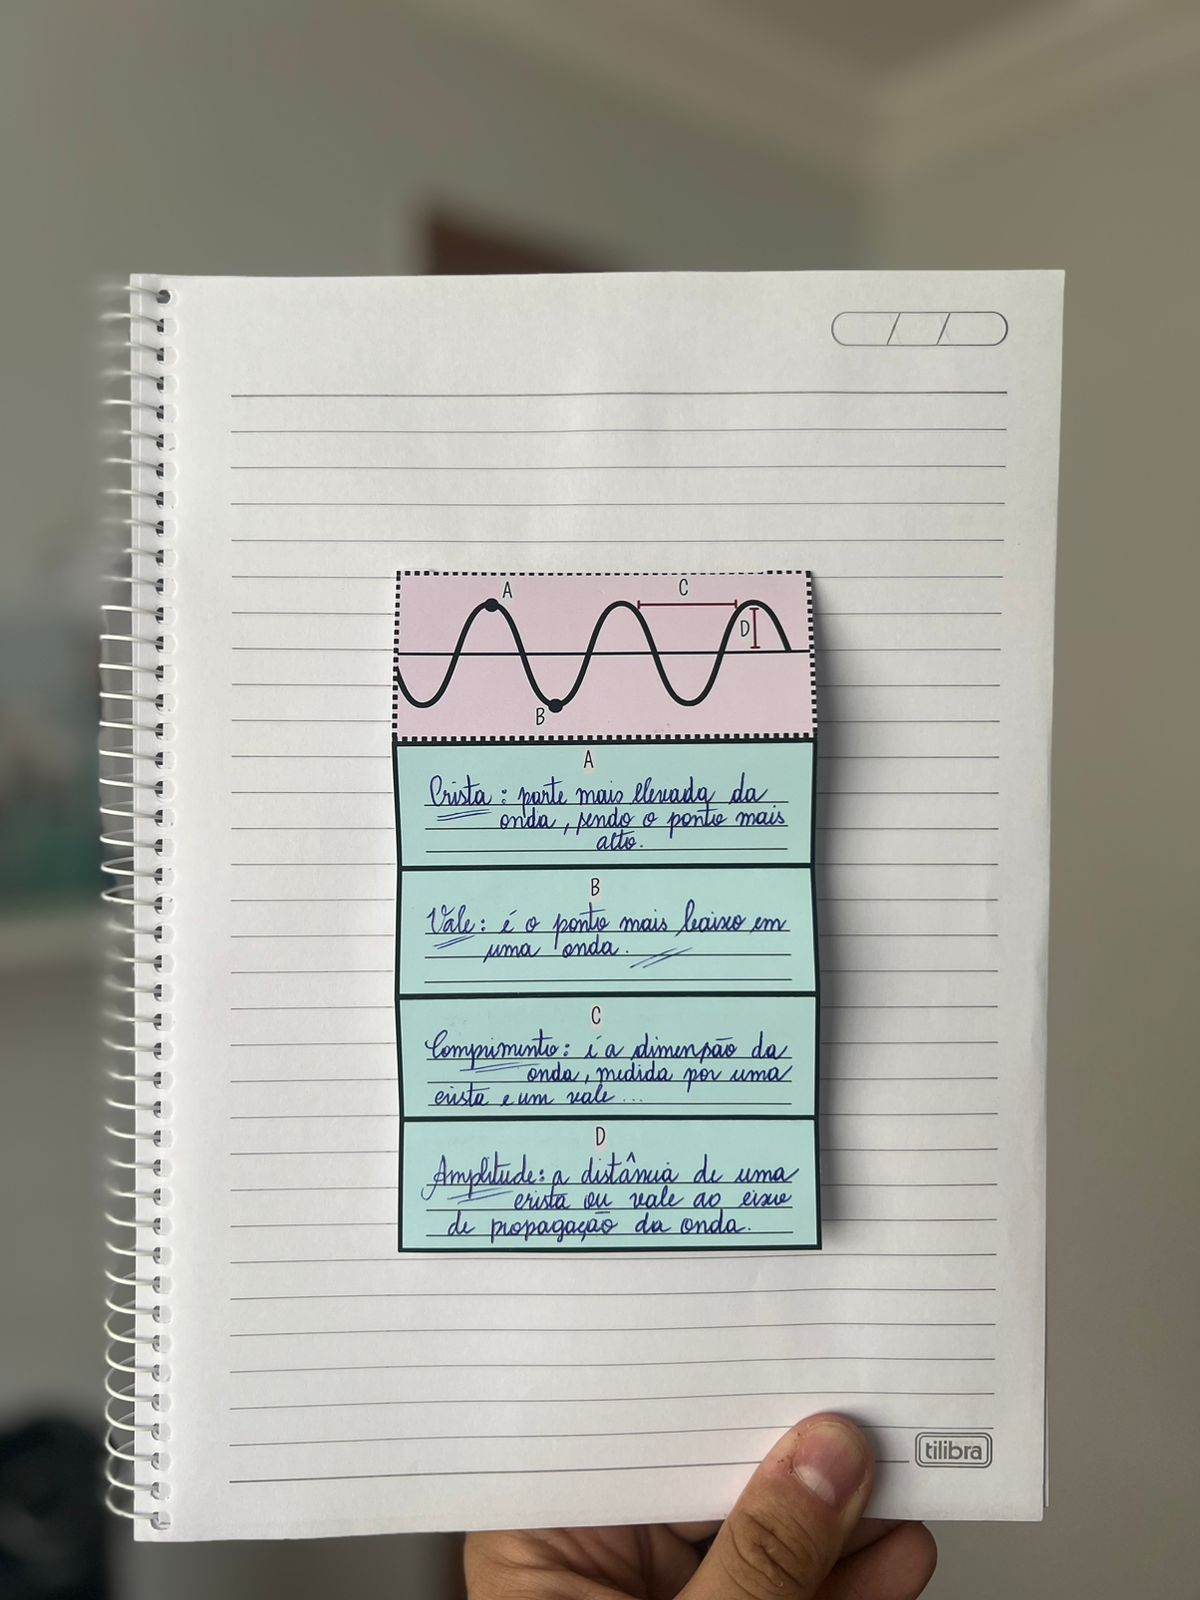 A
C
D
B
A
Crista: parte mais elevada da
onda, sendo o ponto mais
alto.
B
Vale: é o ponto mais baixo em
uma onda.
C
Comprimento: é a dimensão da
onda, medida por uma
crista e um vale...
D
Amplitude: a distância de uma
crista ou vale ao eixo
de propagação da onda.
tilibra